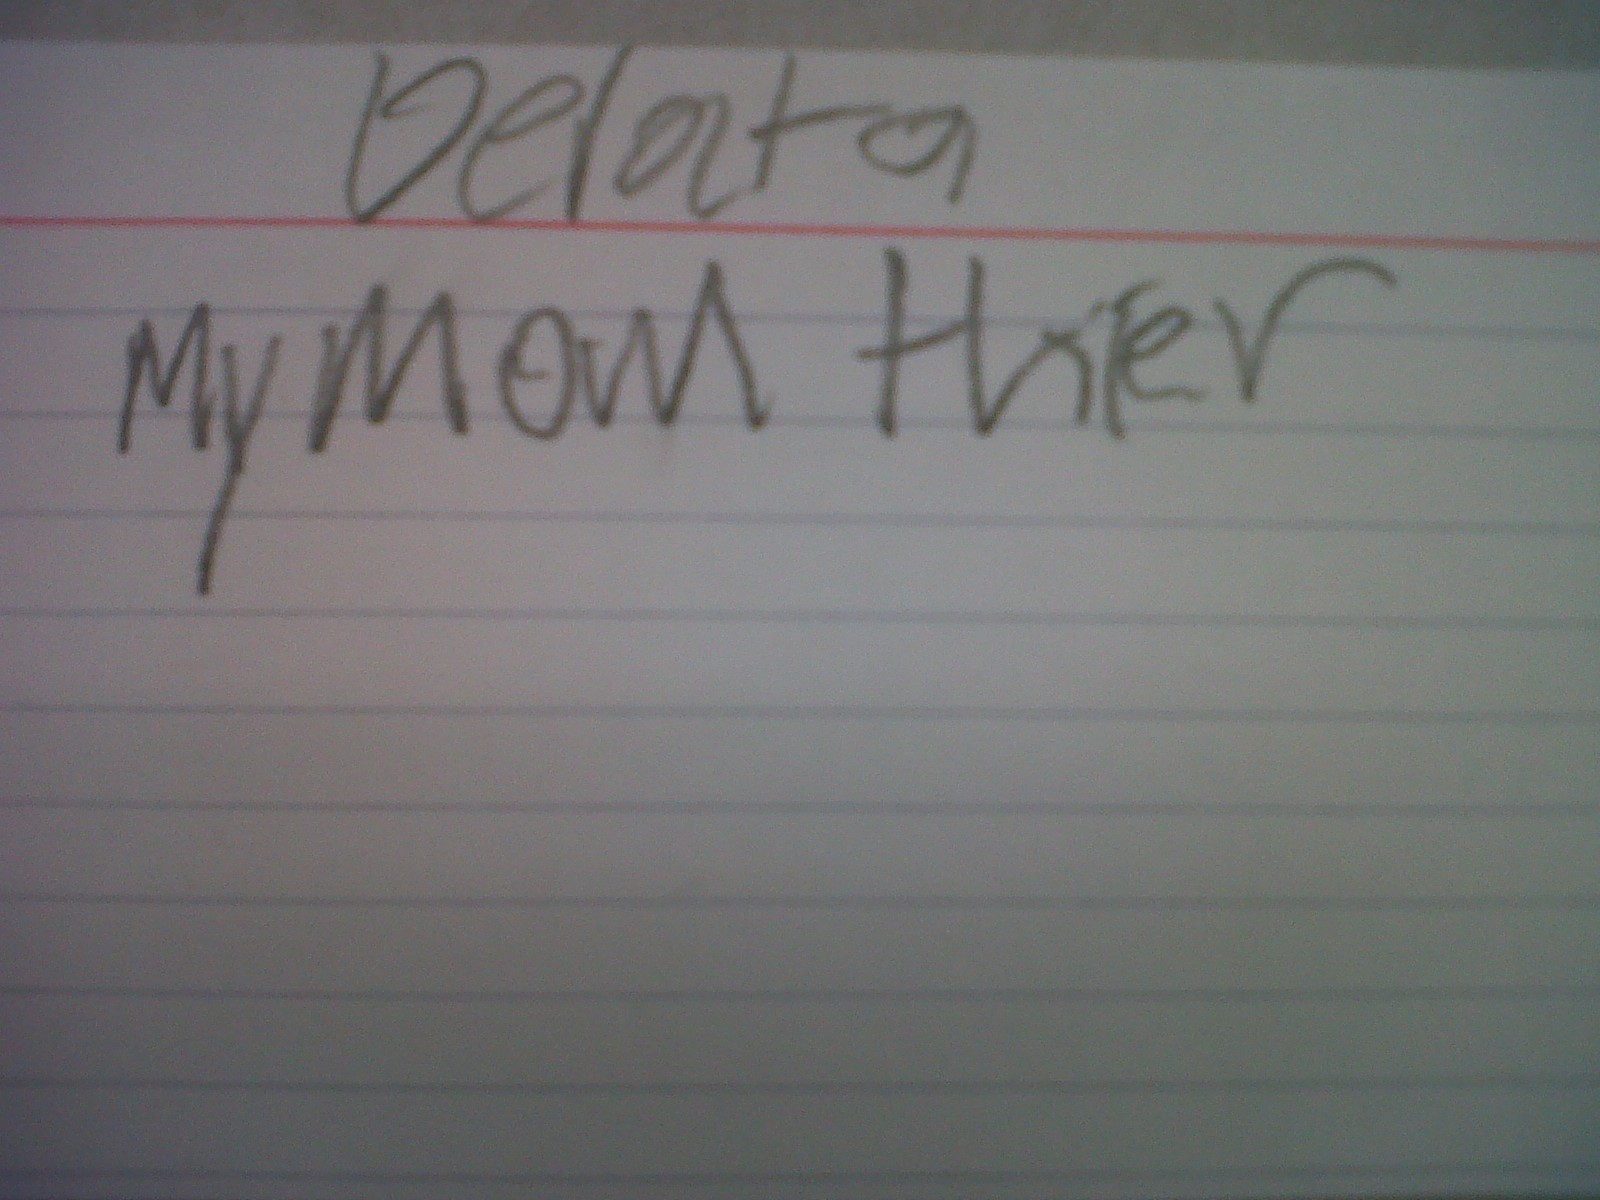 Delata
My Mom thier